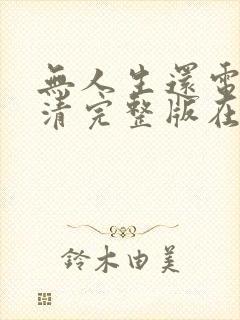 無人生還電
清完整版在
鈴木由美